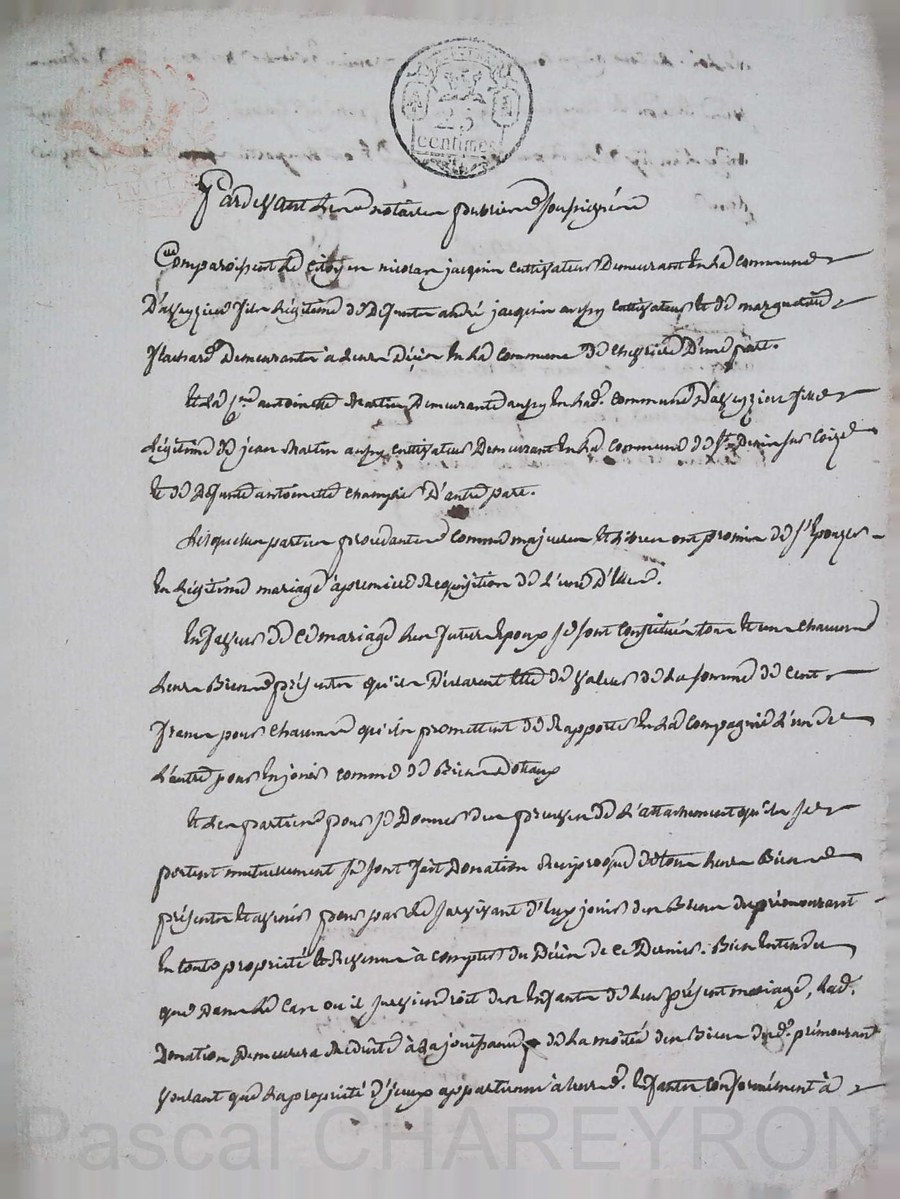 25
centimes
Pardevant les notaires publics soussignés
Comparoissent le citoyen nicolas jacquin cultivateur Demeurant en la commune
D'aveyzieu fils légitime de Defunts andré jacquin aussy cultivateur et de marguerite
flachard Demeurante à leurs Décès en la commune de chevrieres D'une part.
Et la C.ne antoinette Martin Demeurante aussy en lad. commune D'aveyzieu fille
légitime de jean Martin aussy cultivateur Demeurant en la commune de St Denis sur Coize
Et de Defunte antoinette Champier D'autre part.
Lesquelles parties procedantes comme majeures et libres ont promis de s'Epouser
En légitime mariage à premiere Requisition de l'une D'elles.
En faveur de ce mariage les futurs Epoux se sont Constitués tous et uns chacuns
leurs Biens présents qu'ils Déclarent Etre de valeur de la somme de cent
francs pour chacun qu'ils promettent de Rapporter En la Compagnie l'un de
l'autre pour En jouir comme de Biens Dotaux
Et les parties pour se Donner des preuves de l'attachement qu'elles se
portent mutuellement se sont fait Donation Reciproque de tous leurs Biens
présents et avenir pour par le survivant d'Eux jouir des Biens du prémourant
En toute propriété et Revenus à compter du Décès de ce Dernier. Bien Entendu
que Dans le Cas ou il surviendroit des Enfants de leur présent mariage, lad.
Donation Demeurera réduite à la jouissance de la moitié des Biens dud. prémourant
voulant que la propriété d'iceux appartienne à leursd. Enfants conformément à
Pascal CHAREYRON